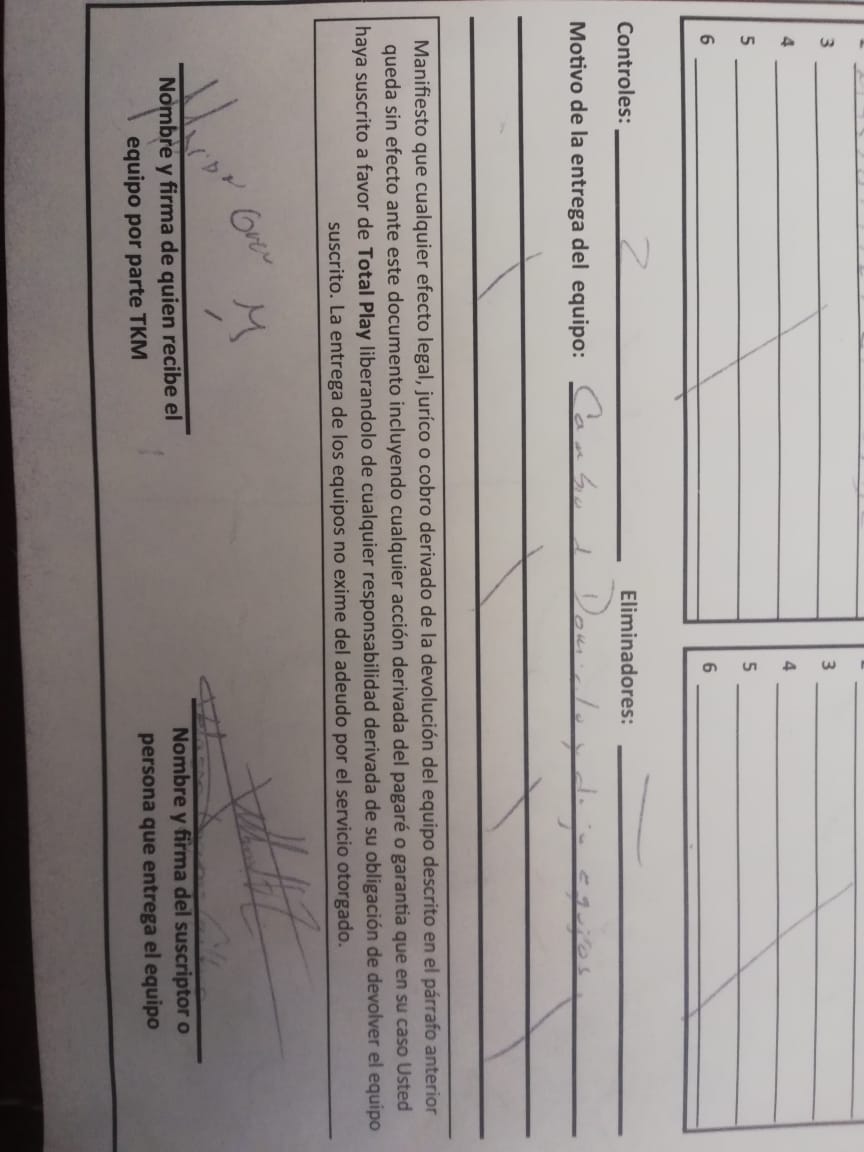 3
4
5
6
3
4
5
6
Controles: 2 Eliminadores: —
Motivo de la entrega del equipo: Cambio d Domicilio y dejo equipos.
Manifiesto que cualquier efecto legal, juríco o cobro derivado de la devolución del equipo descrito en el párrafo anterior
queda sin efecto ante este documento incluyendo cualquier acción derivada del pagaré o garantia que en su caso Usted
haya suscrito a favor de Total Play liberandolo de cualquier responsabilidad derivada de su obligación de devolver el equipo
suscrito. La entrega de los equipos no exime del adeudo por el servicio otorgado.
Nombre y firma de quien recibe el
equipo por parte TKM
Nombre y firma del suscriptor o
persona que entrega el equipo